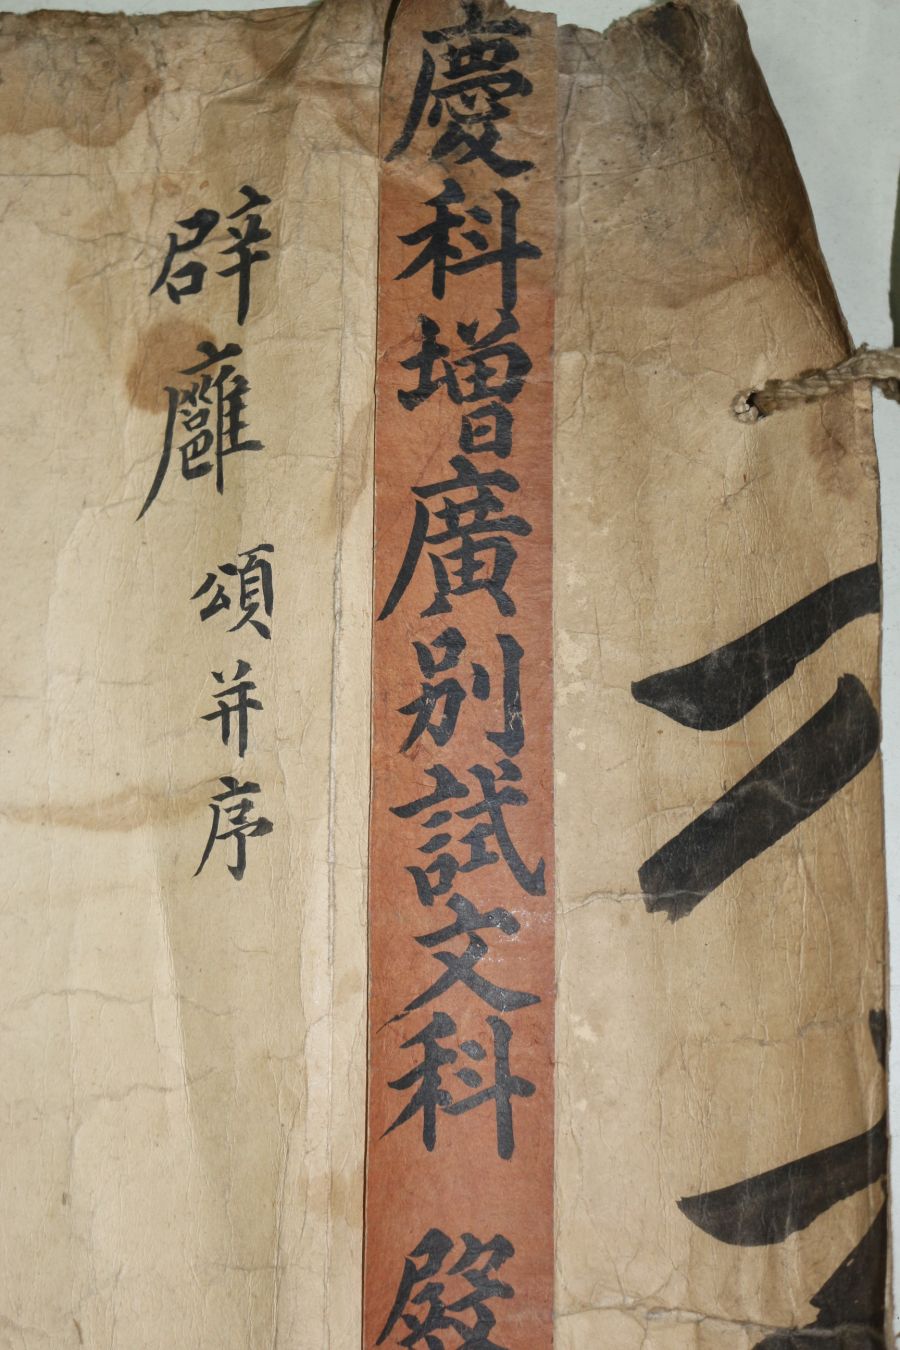 慶科增廣別試文科 殿
辟廱 頌并序